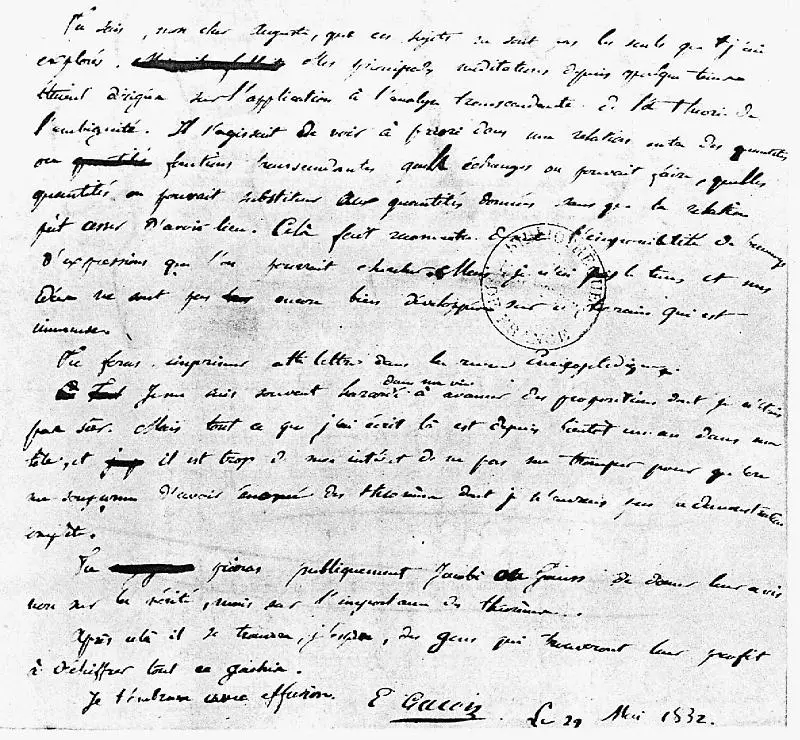 Tu sais, mon cher Auguste, que ces sujets ne sont pas les seuls que j'aie
explorés. Mes principales méditations depuis quelque temps
étaient dirigées sur l'application à l'analyse transcendante de la théorie de
l'ambiguité. Il s'agissait de voir à priori dans une relation entre des quantités
ou fonctions transcendantes quels échanges on pouvait faire, quelles
quantités on pouvait substituer aux quantités données sans que la relation
put cesser d'avoir lieu. Cela fait reconnaitre l'impossibilité de beaucoup
d'expressions que l'on pourrait chercher. Mais je n'ai pas le tems et mes
idées ne sont pas encore bien développées sur ce terrain qui est
immense.
Tu feras imprimer cette lettre dans la revue Encyclopédique.
dans ma vie
Je me suis souvent hasardé à avancer des propositions dont je n'étais
pas sûr. Mais tout ce que j'ai écrit là est depuis bientôt un an dans ma
tête, et il est trop de mon intérêt de ne pas me tromper pour qu'on
me soupçonne d'avoir énoncé des théorèmes dont je n'aurais pas la démonstration
complète.
Tu prieras publiquement Jacobi ou Gauss de donner leur avis
non sur la vérité, mais sur l'importance des théorèmes.
Après cela il se trouvera, j'espère, des gens qui trouveront leur profit
à déchiffrer tout ce gachis.
Je t'embrasse avec effusion. E Galois Le 29 Mai 1832.